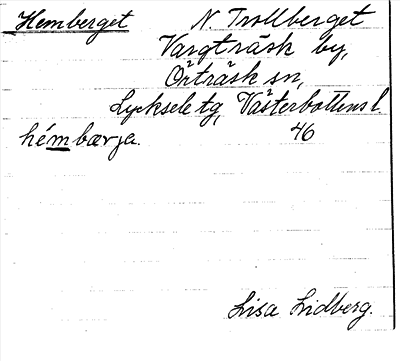 Hemberget N Trollberget
Vargträsk by,
Örträsk sn,
Lycksele tg, Västerbottens l.
hémbærja. 46
Lisa Lidberg.